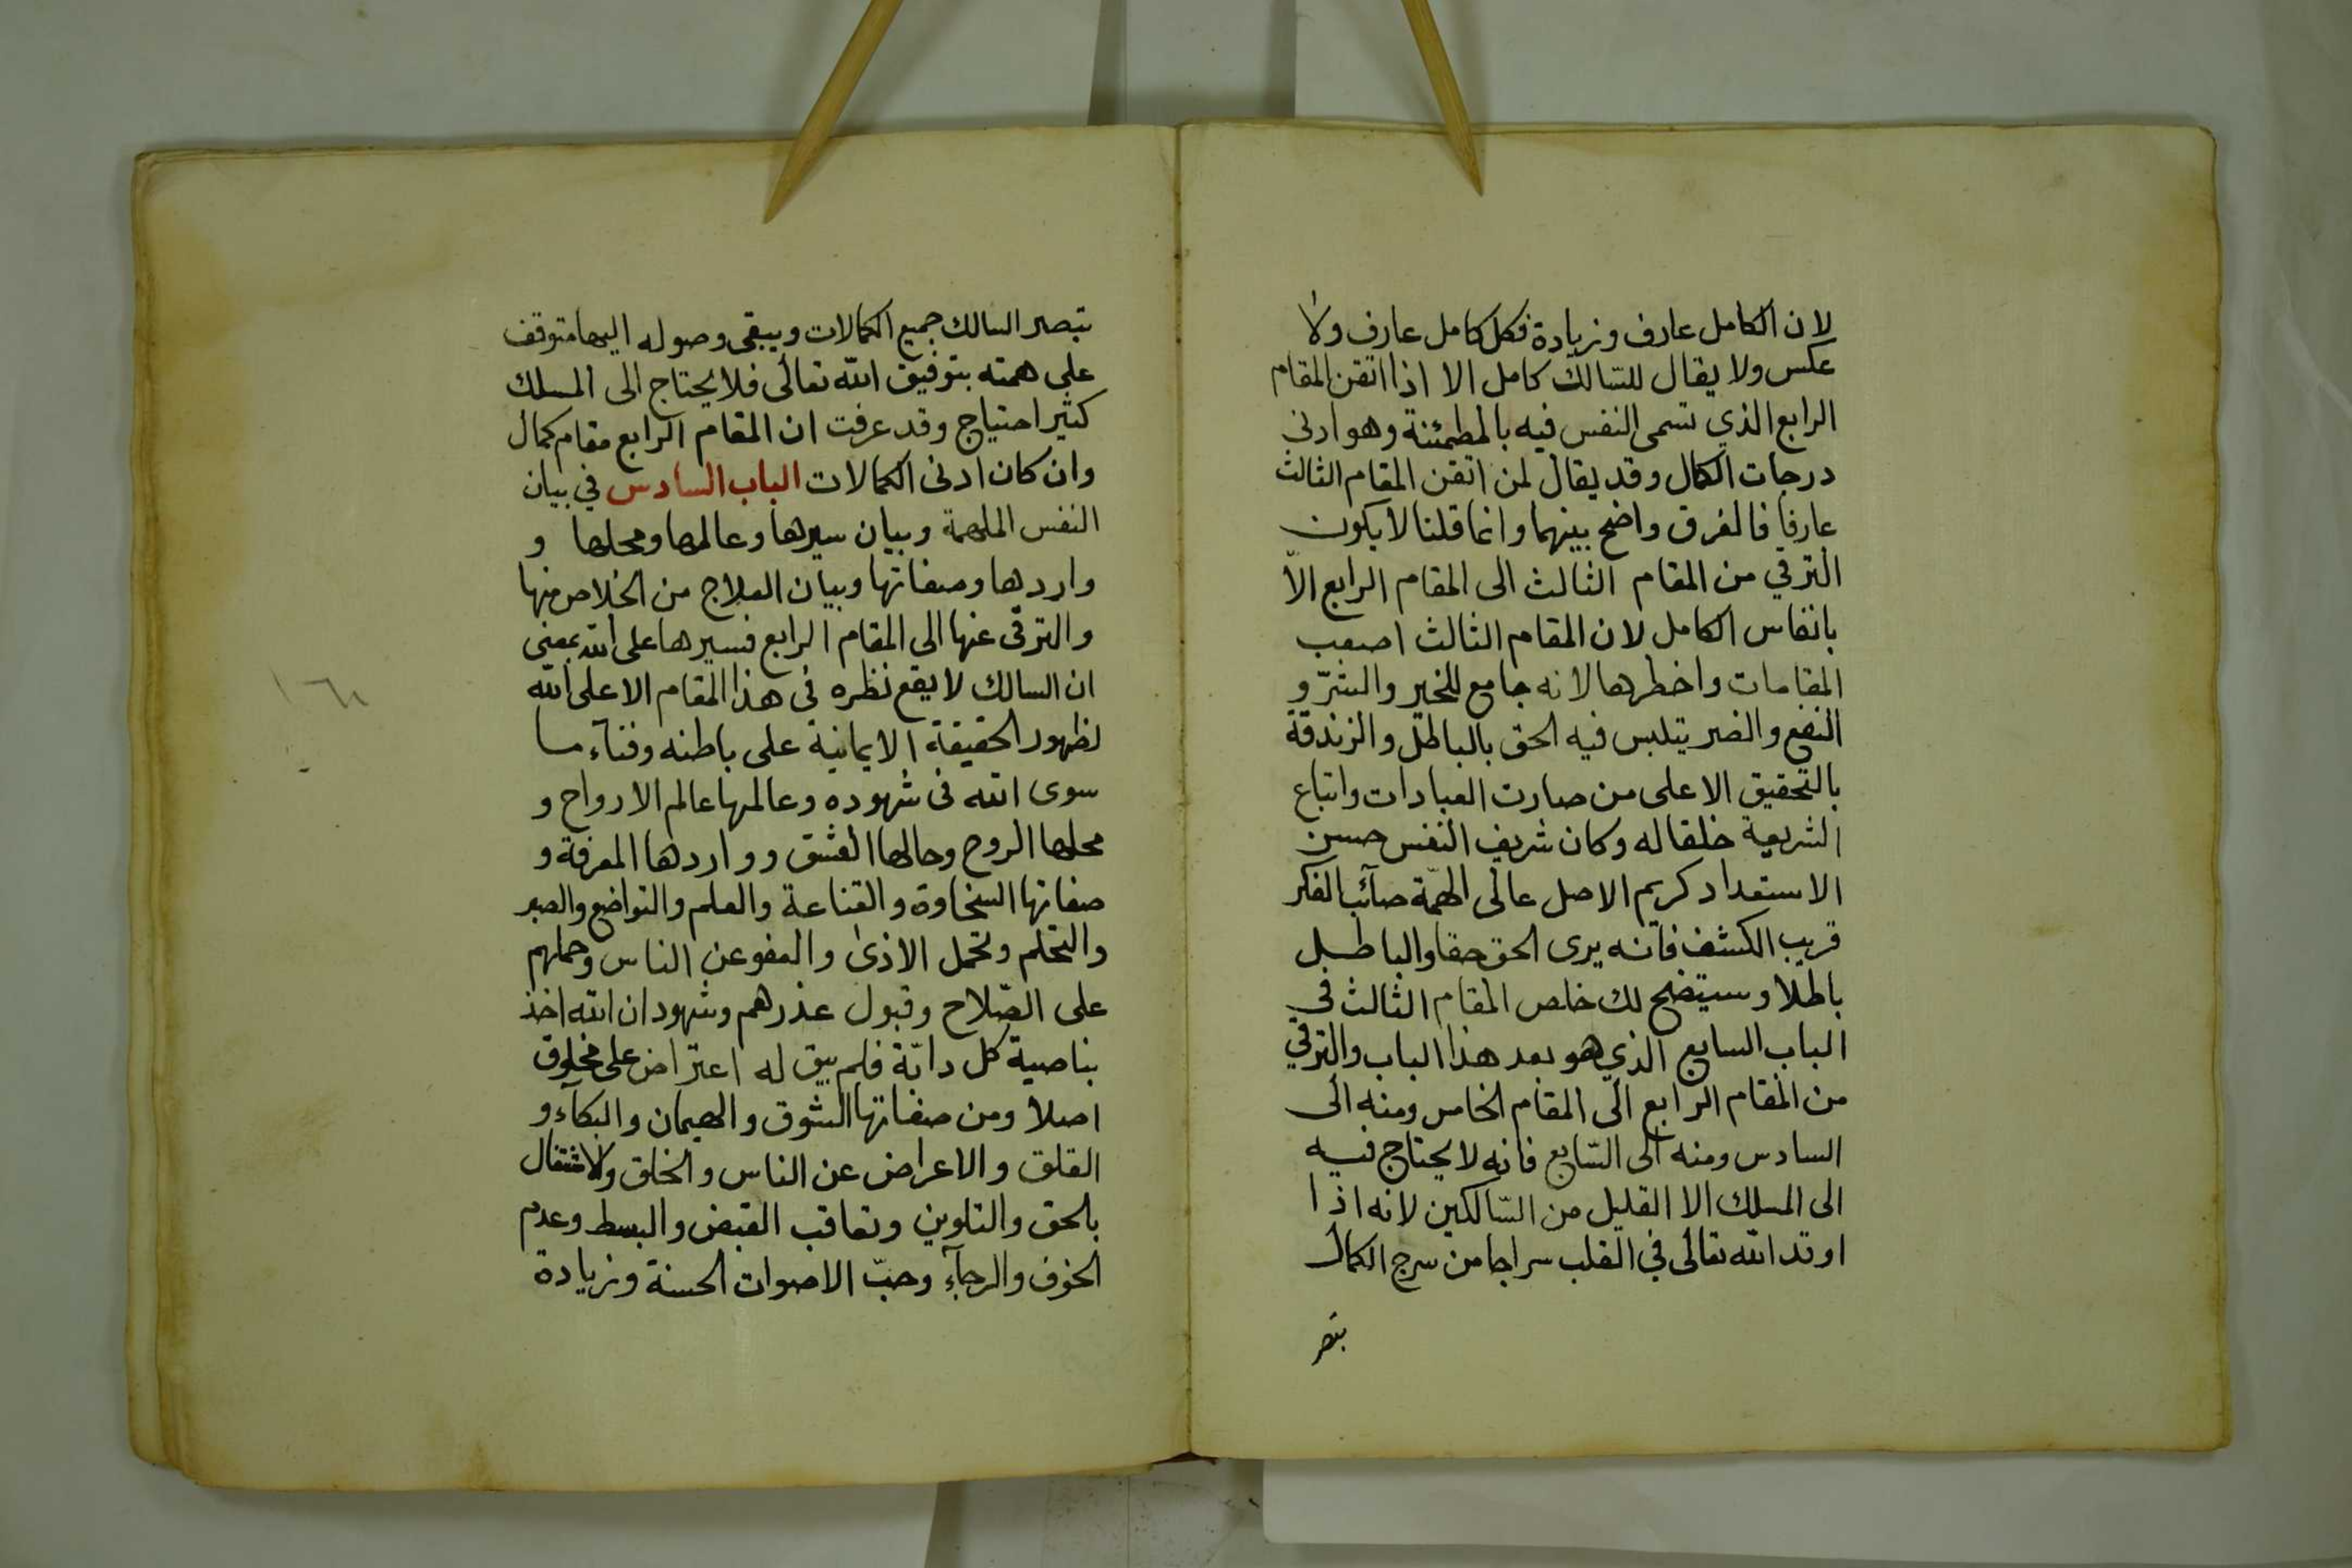 لان الكامل عارف وزيادة فكل كامل عارف ولا
عكس ولا يقال للسّالك كامل الا اذا اتقن المقام
الرابع الذي تسمى النفس فيه بالمطمئنة وهو ادنى
درجات الكمال وقد يقال لمن اتقن المقام الثالث
عارفا فالفرق واضح بينهما وانما قلنا لا يكون
الترقي من المقام الثالث الى المقام الرابع الاّ
بانفاس الكامل لان المقام الثالث اصعب
المقامات واخطرها لانه جامع للخير والشرّ و
النفع والضر يتلبس فيه الحق بالباطل والزندقة
بالتحقيق الا على من صارت العبادات واتباع
الشريعة خلقا له وكان شريف النفس حسن
الاستعداد كريم الاصل عالى الهمّة صآئب الفكر
قريب الكشف فانه يرى الحق حقا والباطل
باطلا وسيتضح لك خلص المقام الثالث في
الباب السابع الذي هو بعد هذا الباب والترقي
من المقام الرابع الى المقام الخامس ومنه الى
السادس ومنه الى السّابع فانه لا يحتاج فيه
الى المسلك الا القليل من السّالكين لانه اذا
اوقد الله تعالى في القلب سراجا من سرج الكمال
بتصر
بتصر السالك جميع الكمالات ويبقى وصوله اليها متوقف
على همته بتوفيق الله تعالى فلا يحتاج الى المسلك
كثير احتياج وقد عرفت ان المقام الرابع مقام كمال
وان كان ادنى الكمالات الباب السادس في بيان
النفس الملهمة وبيان سيرها وعالمها ومحلها و
واردها وصفاتها وبيان العلاج من الخلاص منها
والترقى عنها الى المقام الرابع فسيرها على الله بمعنى
ان السالك لا يقع نظره فى هذا المقام الا على الله
لظهور الحقيقة الايمانية على باطنه وفناء ما
سوى الله فى شهوده وعالمها عالم الارواح و
محلها الروح وحالها العشق وواردها المعرفة و
صفاتها السخاوة والقناعة والعلم والتواضع والصبر
والتحلم وتحمل الاذى والعفو عن الناس وحملهم
على الصّلاح وقبول عذرهم وشهود ان الله اخذ
بناصية كل دابّة فلم يبق له اعتراض على مخلوق
اصلا ومن صفاتها الشوق والهيمان والبكآء و
القلق والاعراض عن الناس والخلق والاشتغال
بالحق والتلوين وتعاقب القبض والبسط وعدم
الخوف والرجآء وحبّ الاصوات الحسنة وزيادة